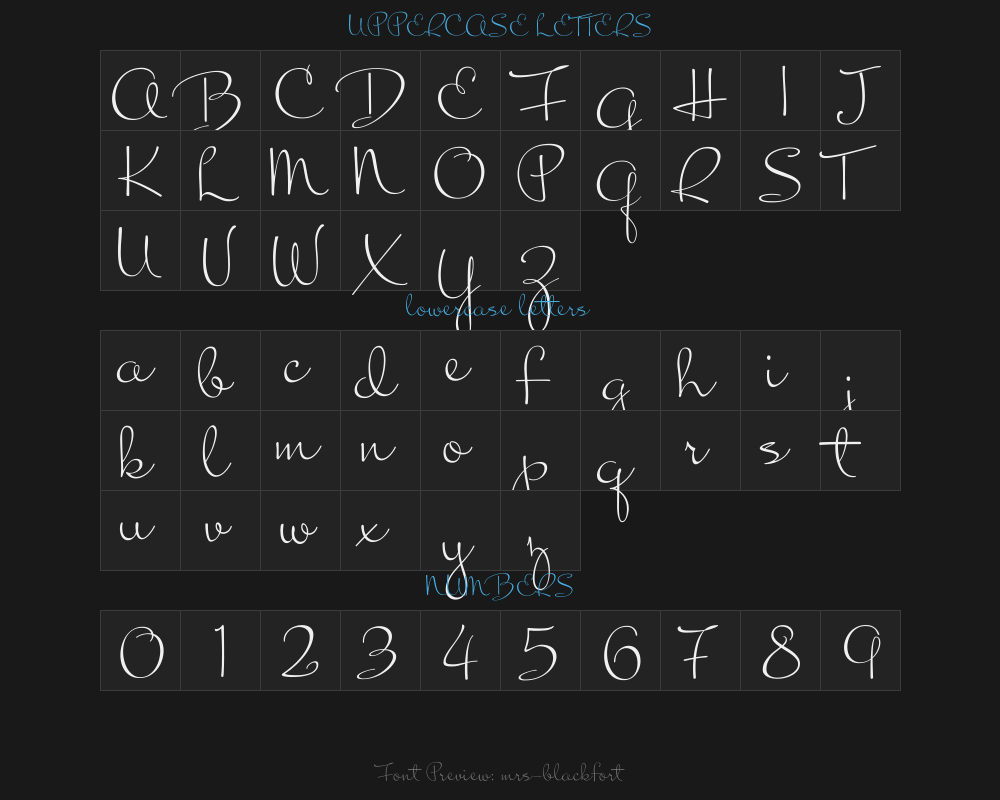 UPPERCASE LETTERS
A B C D E F G H I J
K L M N O P Q R S T
U V W X Y Z
lowercase letters
a b c d e f g h i j
k l m n o p q r s t
u v w x y z
NUMBERS
0 1 2 3 4 5 6 7 8 9
Font Preview: mrs-blackfort